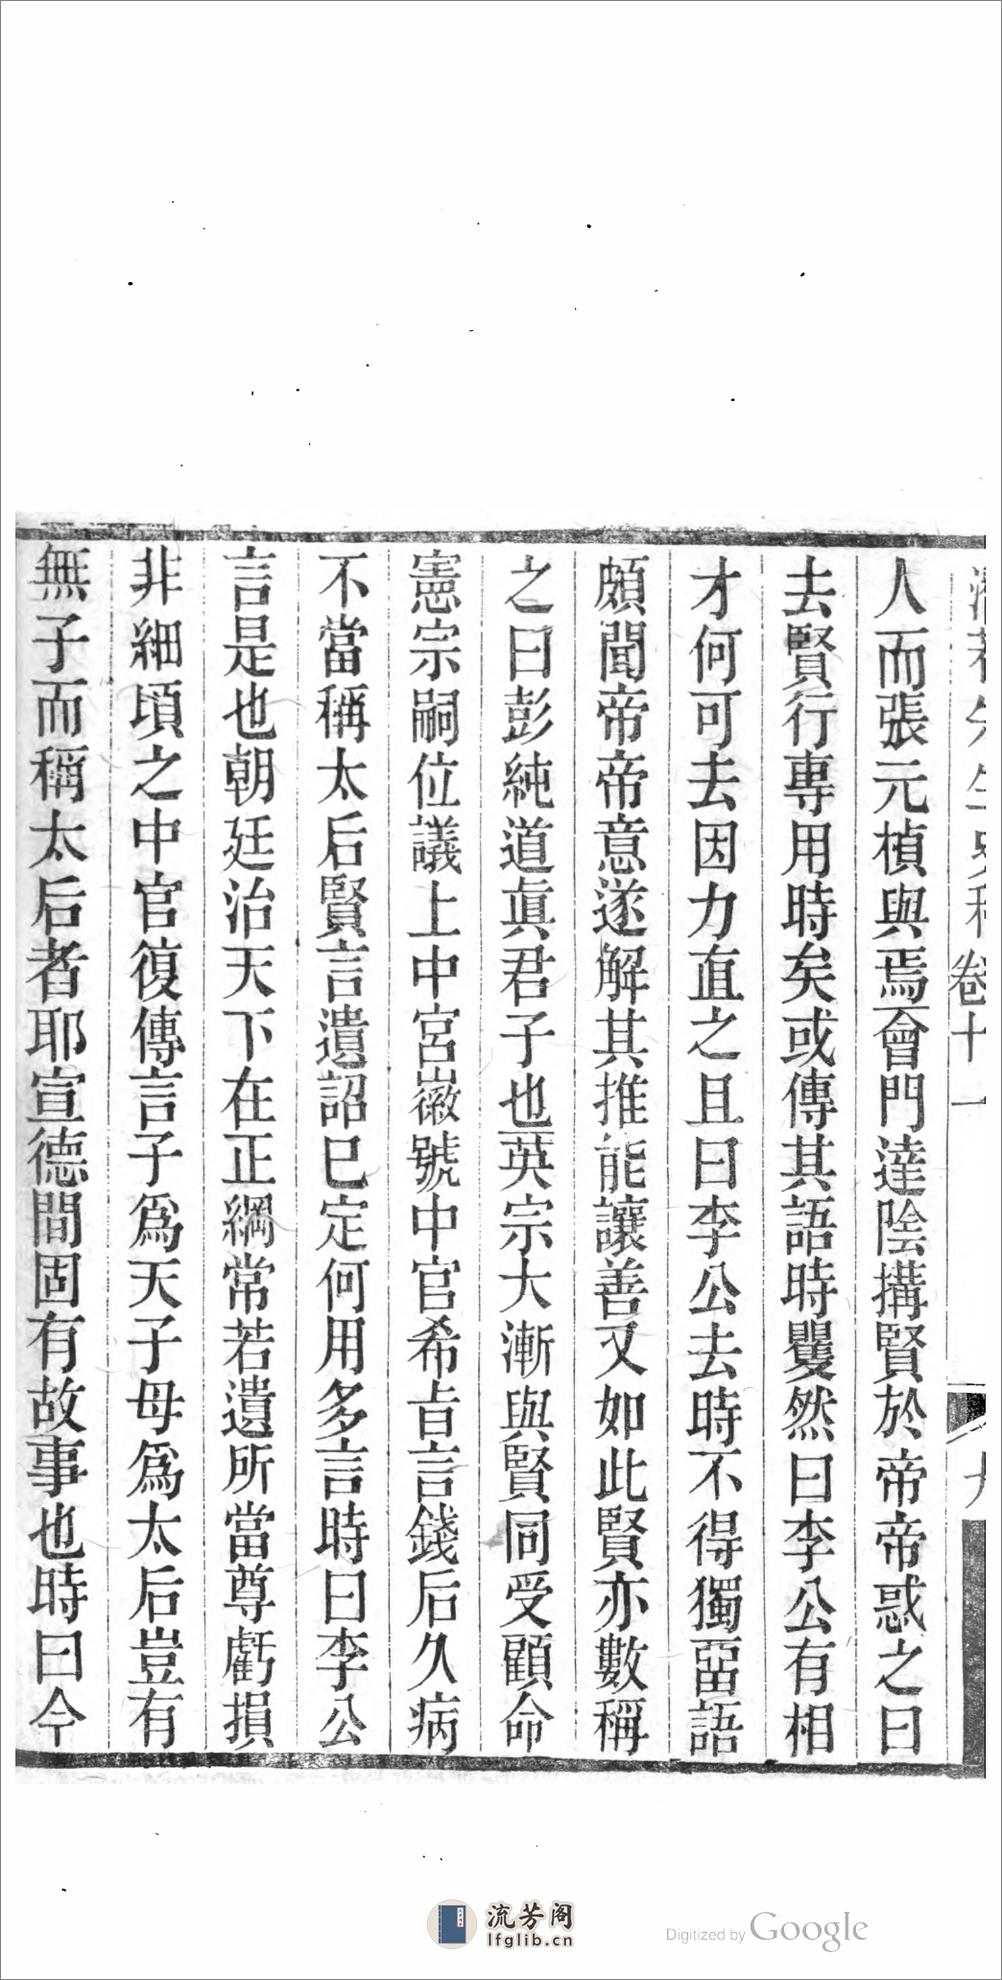 人而張元楨與焉會門達陰搆賢於帝帝惑之曰
去賢行專用時矣或傳其語時矍然曰李公有相
才何可去因力直之且曰李公去時不得獨畱語
頗聞帝帝意遂解其推能讓善又如此賢亦數稱
之曰彭純道眞君子也英宗大漸與賢同受顧命
憲宗嗣位議上中宮徽號中官希旨言錢后久病
不當稱太后賢言遺詔已定何用多言時曰李公
言是也朝廷治天下在正綱常若遺所當尊虧損
非細頃之中官復傳言子爲天子母爲太后豈有
無子而稱太后者耶宣德間固有故事也時曰今
卷十一
流芳阁
lfglib.cn
Digitized by Google